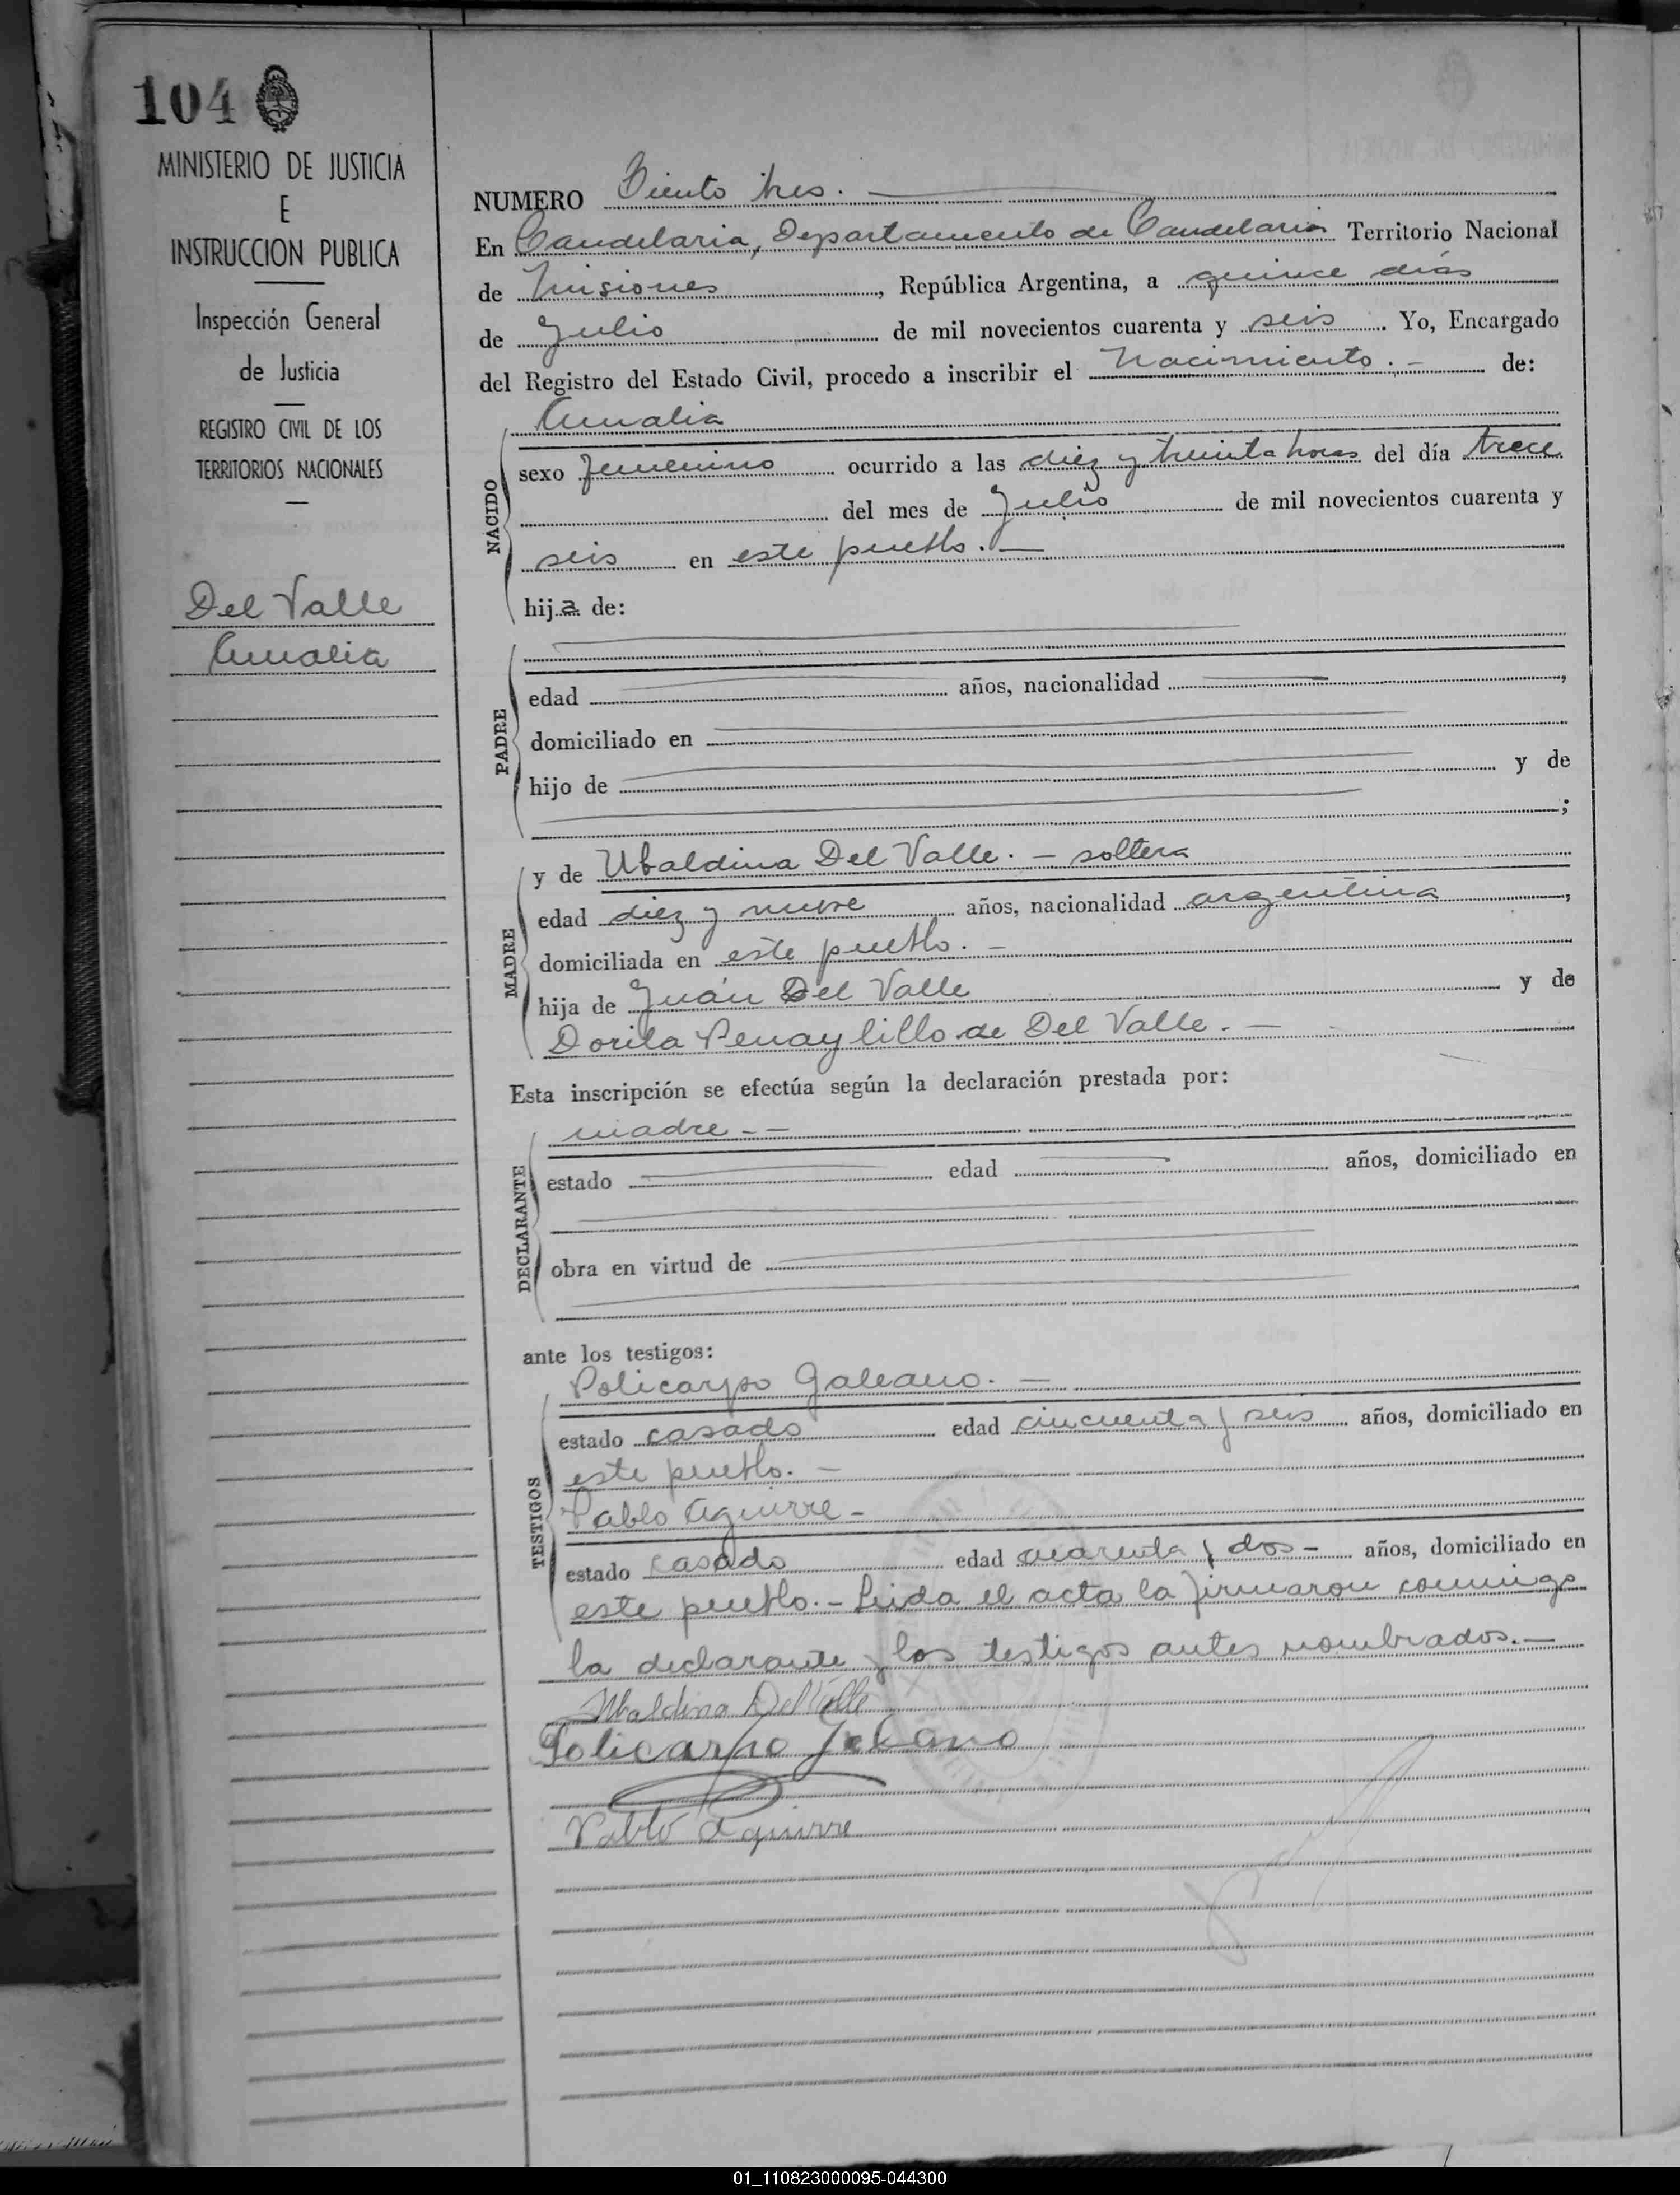 104
MINISTERIO DE JUSTICIA
E
INSTRUCCION PUBLICA
Inspección General
de Justicia
REGISTRO CIVIL DE LOS
TERRITORIOS NACIONALES
Del Valle
Amalia
NUMERO Ciento tres.
En Candelaria, Departamento de Candelaria Territorio Nacional
de Misiones, República Argentina, a quince dias
de Julio de mil novecientos cuarenta y seis. Yo, Encargado
del Registro del Estado Civil, procedo a inscribir el Nacimiento.- de:
NACIDO
Amalia
sexo femenino ocurrido a las diez y treinta horas del día trece
del mes de Julio de mil novecientos cuarenta y
seis en este pueblo.-
hija de:
PADRE
edad años, nacionalidad ,
domiciliado en
hijo de y de
;
MADRE
y de Ubaldina Del Valle. - soltera
edad diez y nueve años, nacionalidad argentina,
domiciliada en este pueblo.-
hija de Juan Del Valle y de
Dorila Penaylillo de Del Valle.-
Esta inscripción se efectúa según la declaración prestada por:
DECLARANTE
madre--
estado edad años, domiciliado en
obra en virtud de
ante los testigos:
TESTIGOS
Policarpo Galeano.-
estado casado edad cincuenta y seis años, domiciliado en
este pueblo.-
Pablo Aguirre-
estado casado edad cuarenta y dos- años, domiciliado en
este pueblo.- Leida el acta la firmaron conmigo
la declarante y los testigos antes nombrados.-
Ubaldina Del Valle
Policarpo Galeano
Pablo Aguirre
01_110823000095-044300